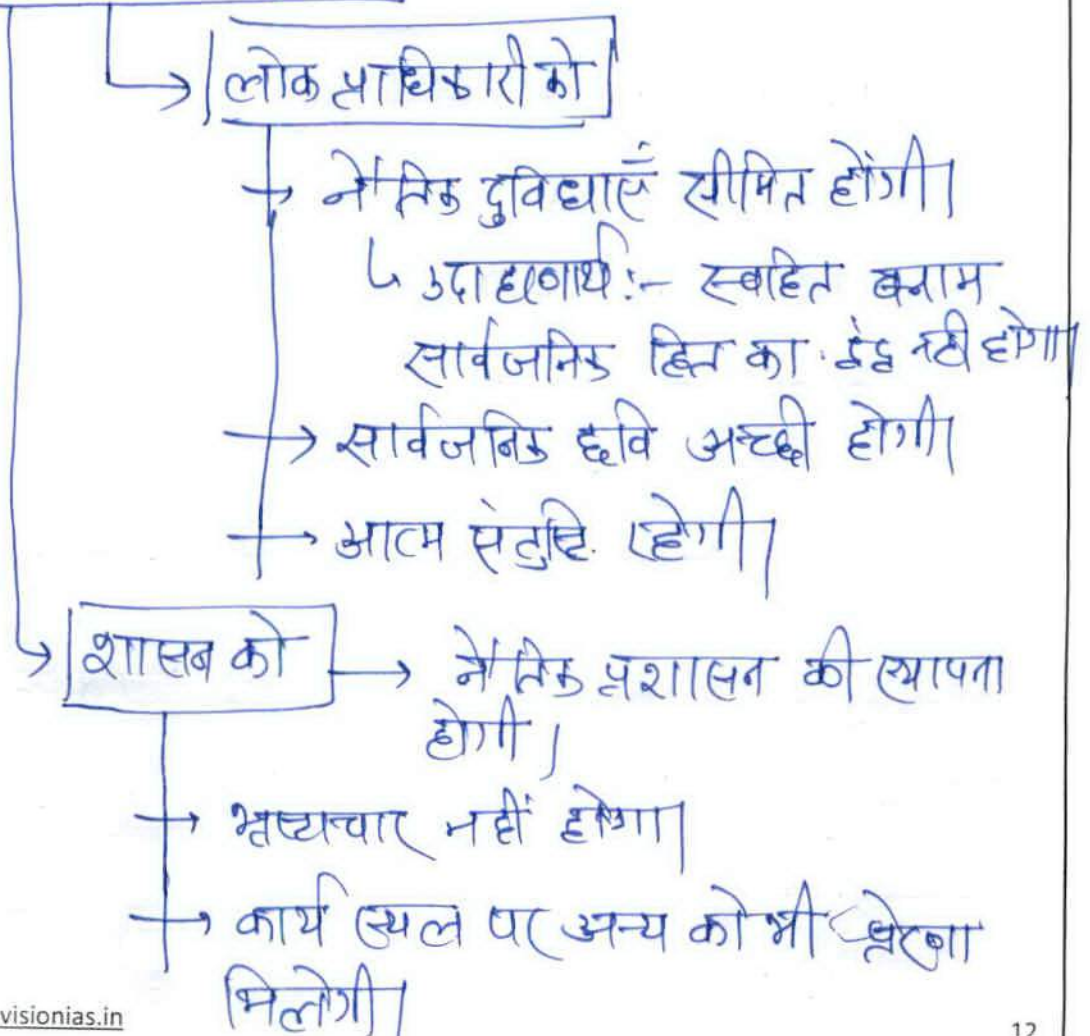 लोक प्राधिकारी को
नैतिक दुविधाएँ सीमित होंगी।
उदाहरणार्थ :- स्वहित बनाम
सार्वजनिक हित का द्वंद्व नहीं होगा
सार्वजनिक छवि अच्छी होगी।
आत्म संतुष्टि रहेगी।
शासन को → नैतिक प्रशासन की स्थापना
होगी।
भ्रष्टाचार नहीं होगा।
कार्य स्थल पर अन्य को भी प्रेरणा
मिलेगी।
visionias.in 12